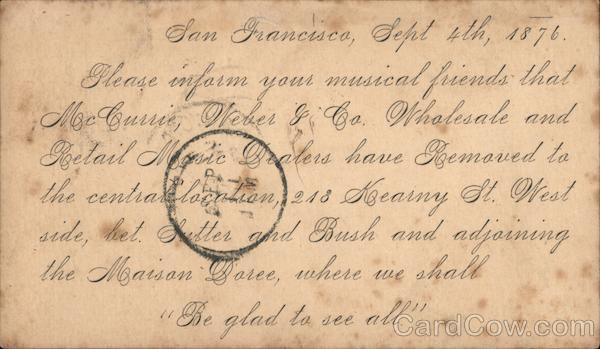 San Francisco, Sept 4th, 1876.
Please inform your musical friends that
McCurrie, Weber & Co. Wholesale and
Retail Music Dealers have Removed to
the central location, 213 Kearny St. West
side, bet. Sutter and Bush and adjoining
the Maison Doree, where we shall
"Be glad to see all"
CardCow.com